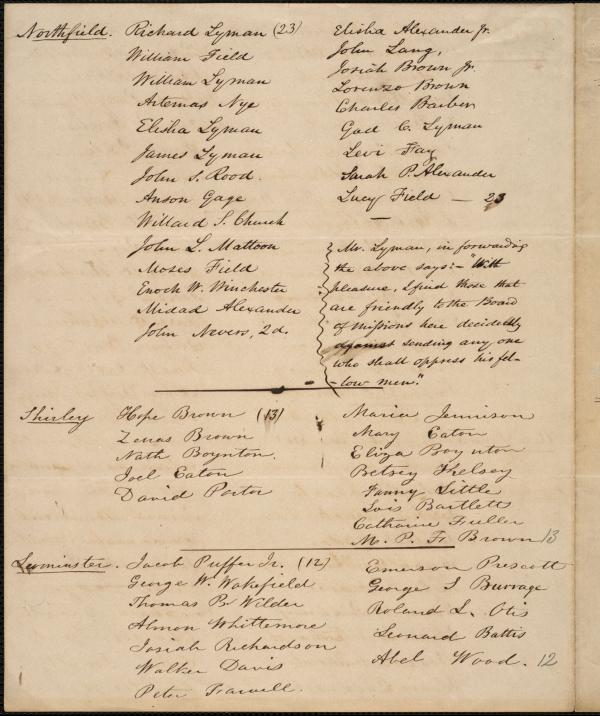 Northfield. Richard Lyman (23)
William Field
William Lyman
Artemas Nye
Elisha Lyman
James Lyman
John S. Rood.
Anson Gage
Willard S. Church
John L. Mattoon
Moses Field
Enoch W. Winchester
Midad Alexander
John Nevers, 2d.
Elisha Alexander Jr.
John Lang,
Josiah Brown Jr.
Lorenzo Brown
Charles Barber
Gad C. Lyman
Levi Fay
Sarah P. Alexander
Lucy Field — 23
Mr. Lyman, in forwarding
the above says:- "With
pleasure, I find those that
are friendly to the Board
of missions here decidedly
against sending any one
who shall oppress his fel-
-low men."
Shirley Hope Brown (13)
Zenas Brown
Nath Boynton.
Joel Eaton
David Porter
Maria Jennison
Mary Eaton
Eliza Boynton
Betsey Kelsey
Fanny Little
Lois Bartlett
Catharine Fuller
M. P. F. Brown 13
Leominster. Jacob Puffer Jr. (12)
George W. Wakefield
Thomas B. Wilder
Almon Whittemore
Josiah Richardson
Walker Davis
Peter Farwell.
Emerson Prescott
George S Burrage
Roland L. Otis
Leonard Battis
Abel Wood. 12